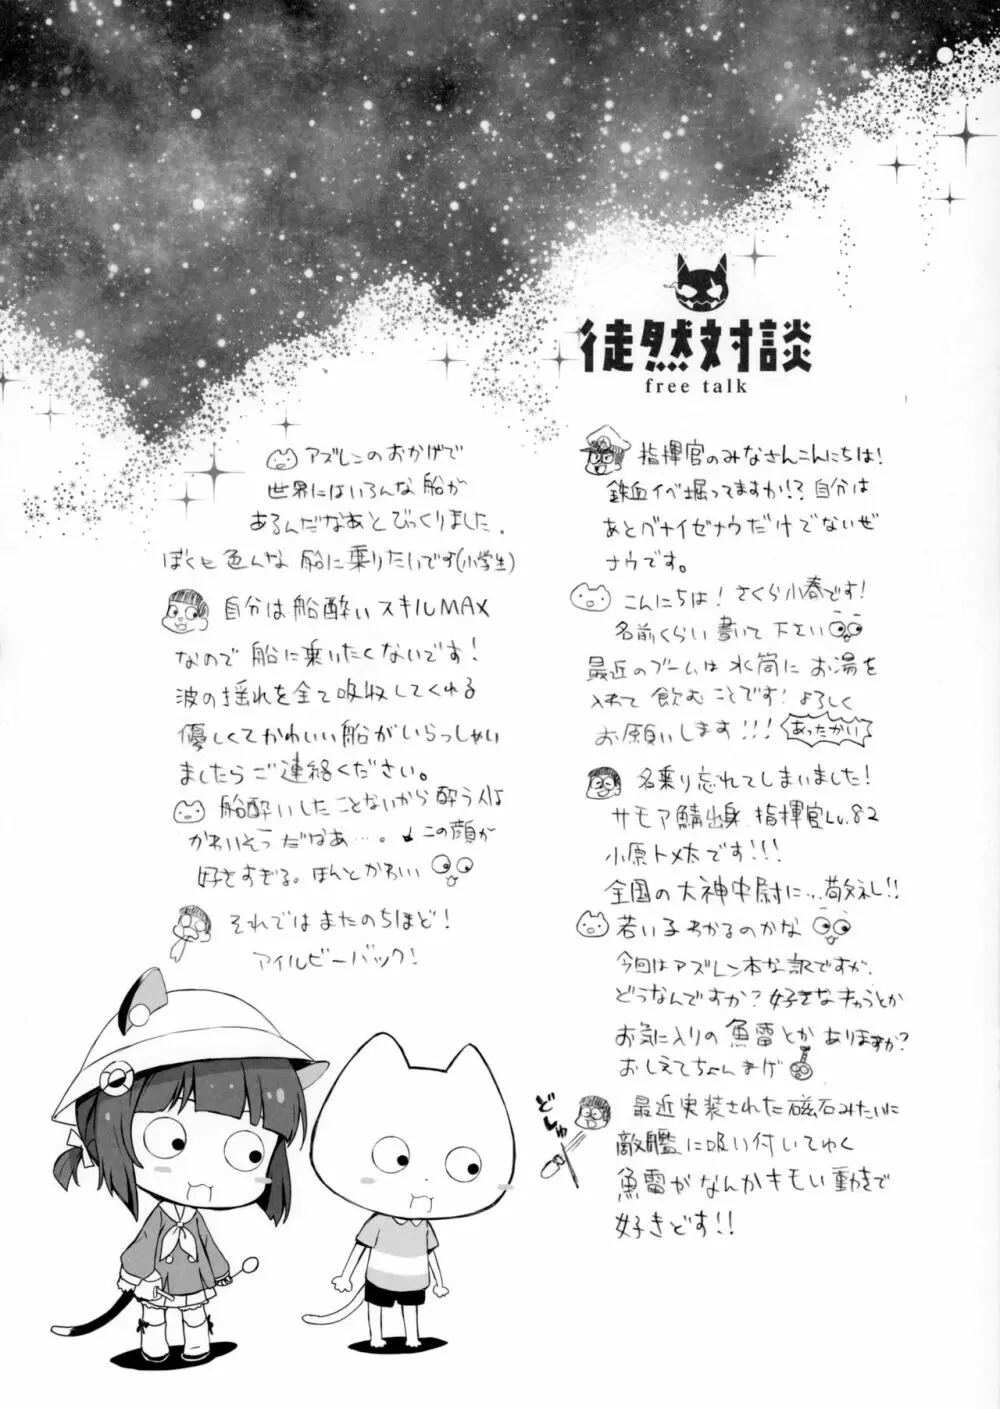 徒然対談
free talk
指揮官のみなさんこんにちは!
鉄血イベ掘ってますか!? 自分は
あとグナイゼナウだけでないぜ
ナウです。
こんにちは! さくら小春です!
名前くらい書いて下さい
最近のブームは水筒にお湯を
入れて飲むことです! よろしく
お願いします!!!
あったかい
名乗り忘れてしまいました!
サモア鯖出身 指揮官Lv.82
小原トメ太です!!!
全国の大神中尉に…敬礼!!
若い子わかるのかな
今回はアズレン本な訳ですが、
どうなんですか? 好きなキャラとか
お気に入りの魚雷とかありますか?
おしえてちょんまげ
どしゅ
最近実装された磁石みたいに
敵艦に吸い付いてゆく
魚雷がなんかキモい動きで
好きどす!!
アズレンのおかげで
世界にはいろんな船が
あるんだなあとびっくりしました.
ぼくも色んな船に乗りたいです(小学生)
自分は船酔いスキルMAX
なので船に乗いたくないです!
波の揺れを全て吸収してくれる
優しくてかわいい船がいらっしゃい
ましたらご連絡ください。
船酔いしたことないから酔う人は
かわいそうだなあ…。 この顔が
好きすぎる。ほんとかわいい
それではまたのちほど!
アイルビーバック!